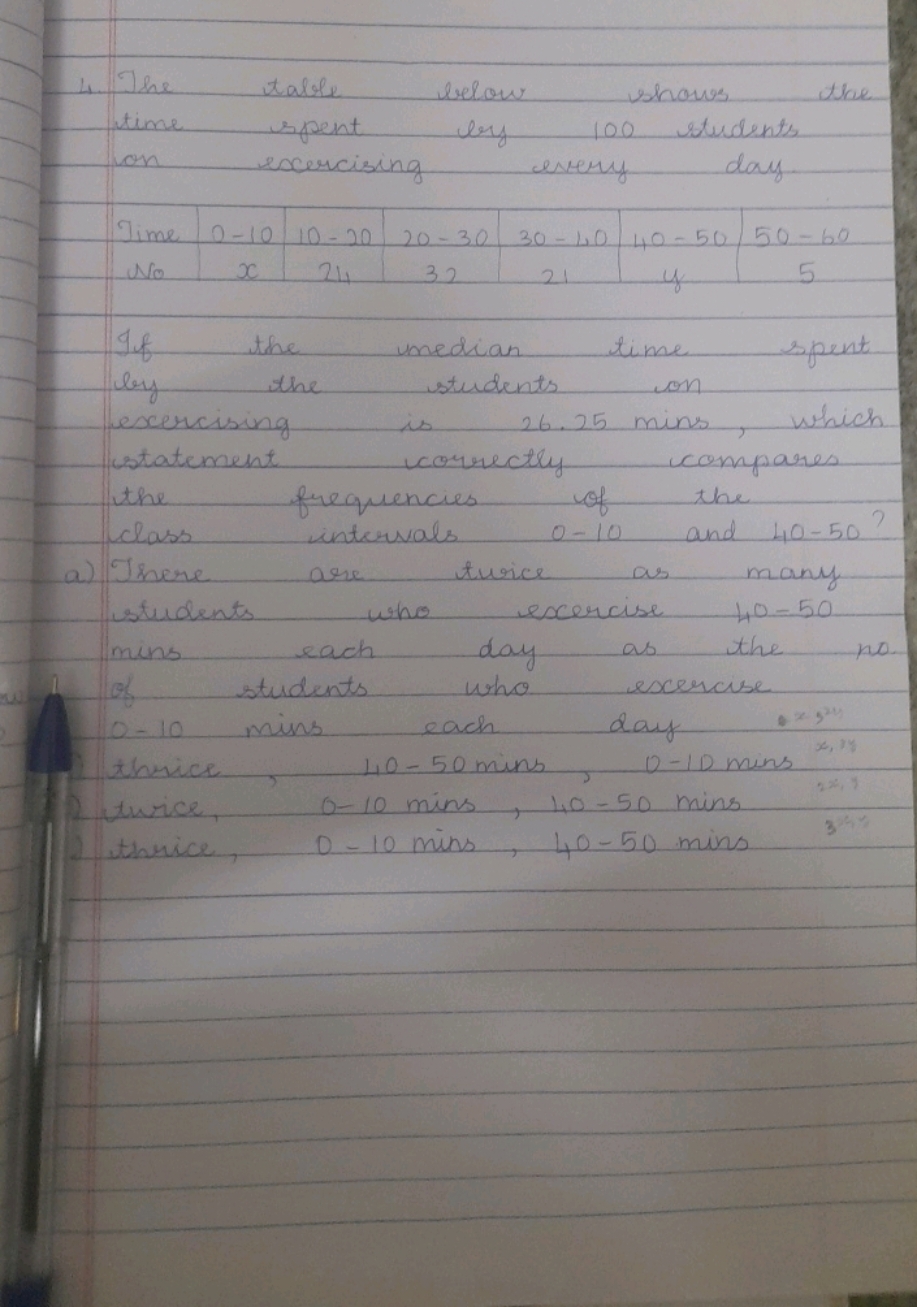 4. The table below shows the
time spent by 100 students
on excercising every day
Time 0-10 10-20 20-30 30-40 40-50 50-60
No x 24 32 21 y 5
If the median time spent
by the students on
excercising is 26.25 mins, which
statement correctly compares
the frequencies of the
class intervals 0-10 and 40-50?
a) There are twice as many
students who excercise 40-50
mins each day as the no
of students who excercise
0-10 mins each day
) thrice, 40-50 mins, 0-10 mins
) twice, 0-10 mins, 40-50 mins
) thrice, 0-10 mins, 40-50 mins